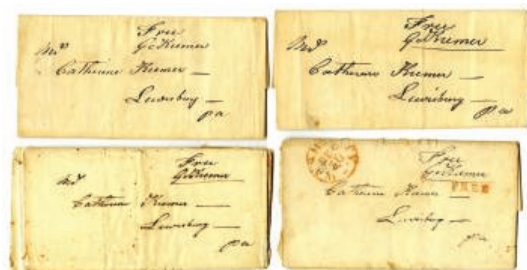 Free
G Kremer
Mrs
Catherine Kremer
Lewisburg
pa
Free
G Kremer
Mrs
Catherine Kremer
Lewisburg
pa
Free
G Kremer
Mrs
Catherine Kremer
Lewisburg
pa
Free
G Kremer
FREE
Catherine Kremer
Lewisburg
pa